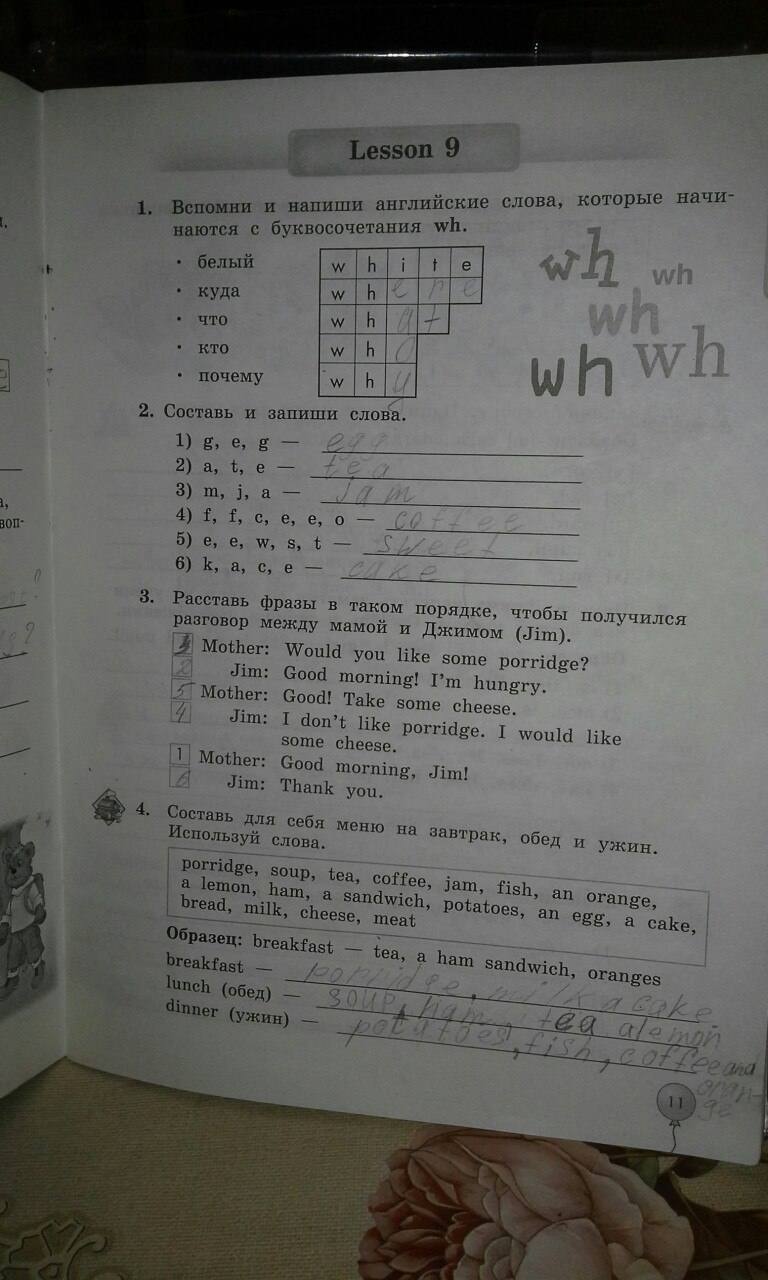 Lesson 9
1. Вспомни и напиши английские слова, которые начи-
наются с буквосочетания wh.
• белый w h i t e
• куда w h e r e
• что w h a t
• кто w h o
• почему w h y
wh
wh
wh
wh
wh
2. Составь и запиши слова.
1) g, e, g — egg
2) a, t, e — tea
3) m, j, a — jam
4) f, f, c, e, e, o — coffee
5) e, e, w, s, t — sweet
6) k, a, c, e — cake
3. Расставь фразы в таком порядке, чтобы получился
разговор между мамой и Джимом (Jim).
3 Mother: Would you like some porridge?
2 Jim: Good morning! I'm hungry.
5 Mother: Good! Take some cheese.
4 Jim: I don't like porridge. I would like
some cheese.
1 Mother: Good morning, Jim!
6 Jim: Thank you.
4. Составь для себя меню на завтрак, обед и ужин.
Используй слова.
porridge, soup, tea, coffee, jam, fish, an orange,
a lemon, ham, a sandwich, potatoes, an egg, a cake,
bread, milk, cheese, meat
Образец: breakfast — tea, a ham sandwich, oranges
breakfast — porridge, milk a cake
lunch (обед) — soup, ham, tea a lemon
dinner (ужин) — potatoes, fish, coffee and
oran-
ge
11